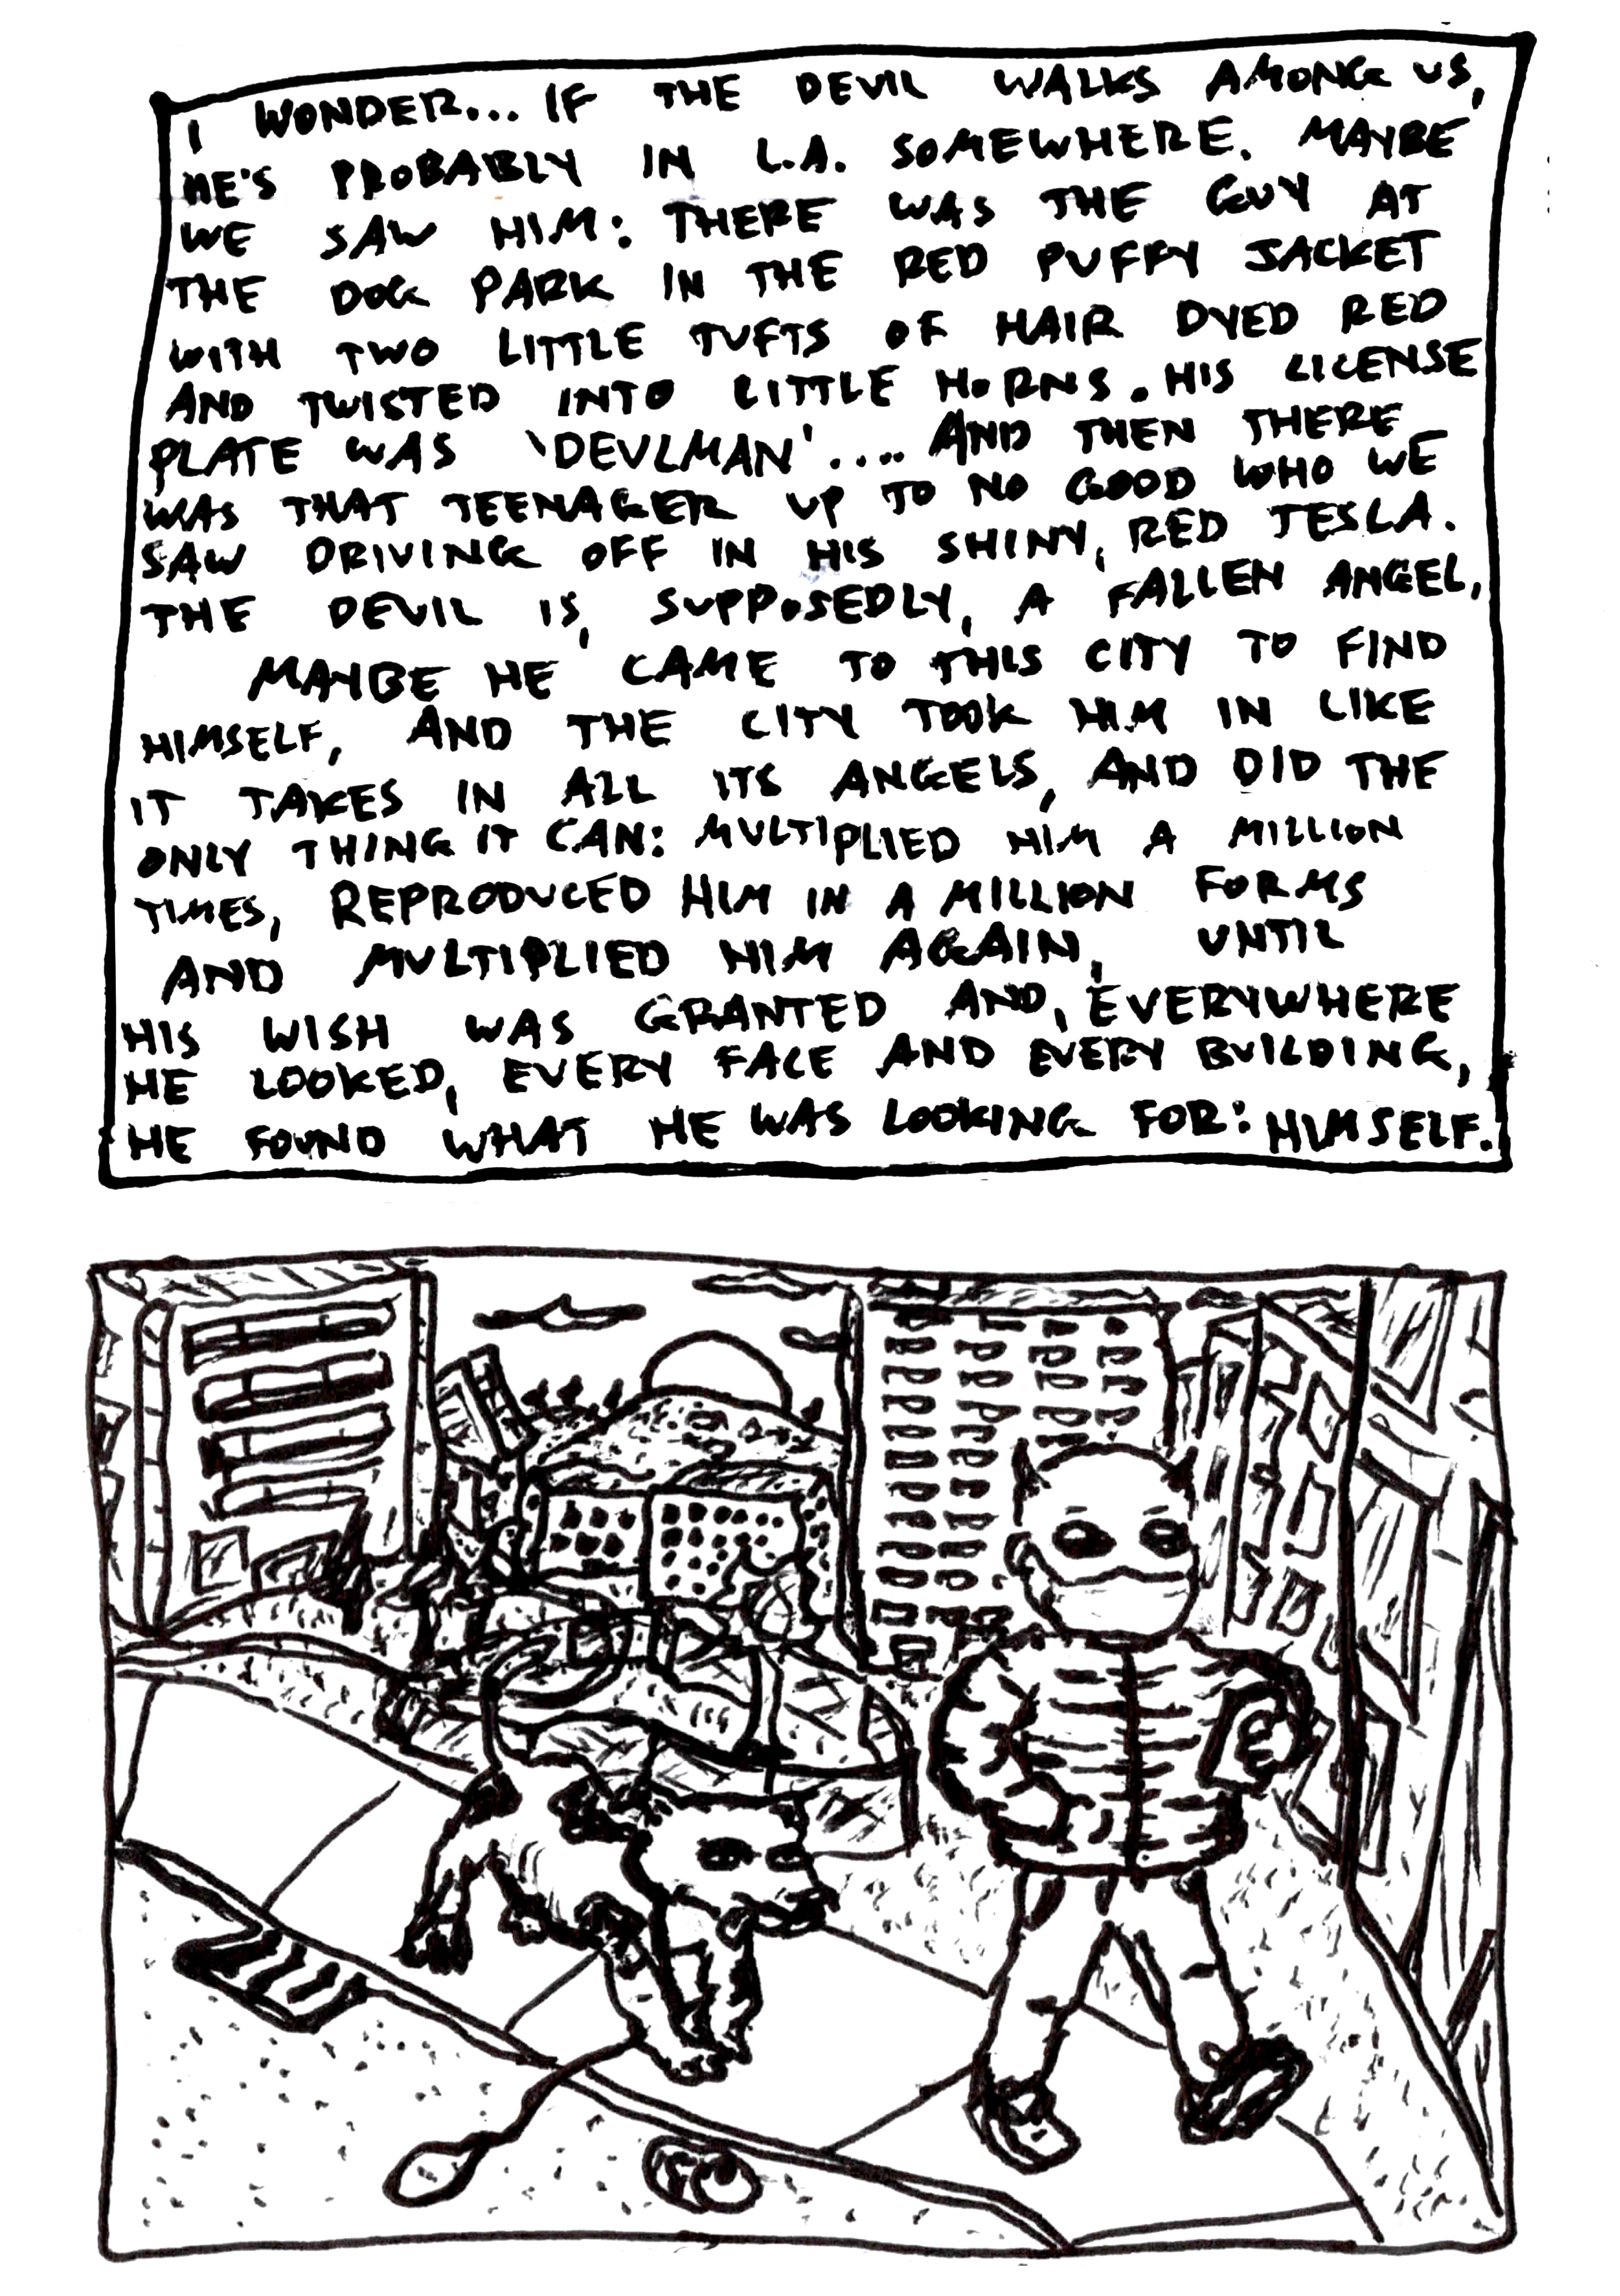 I WONDER... IF THE DEVIL WALKS AMONG US,
HE'S PROBABLY IN L.A. SOMEWHERE. MAYBE
WE SAW HIM: THERE WAS THE GUY AT
THE DOG PARK IN THE RED PUFFY JACKET
WITH TWO LITTLE TUFTS OF HAIR DYED RED
AND TWISTED INTO LITTLE HORNS. HIS LICENSE
PLATE WAS 'DEVLMAN'.... AND THEN THERE
WAS THAT TEENAGER UP TO NO GOOD WHO WE
SAW DRIVING OFF IN HIS SHINY, RED TESLA.
THE DEVIL IS, SUPPOSEDLY, A FALLEN ANGEL,
MAYBE HE CAME TO THIS CITY TO FIND
HIMSELF, AND THE CITY TOOK HIM IN LIKE
IT TAKES IN ALL ITS ANGELS, AND DID THE
ONLY THING IT CAN: MULTIPLIED HIM A MILLION
TIMES, REPRODUCED HIM IN A MILLION FORMS
AND MULTIPLIED HIM AGAIN, UNTIL
HIS WISH WAS GRANTED AND, EVERYWHERE
HE LOOKED, EVERY FACE AND EVERY BUILDING,
HE FOUND WHAT HE WAS LOOKING FOR: HIMSELF.